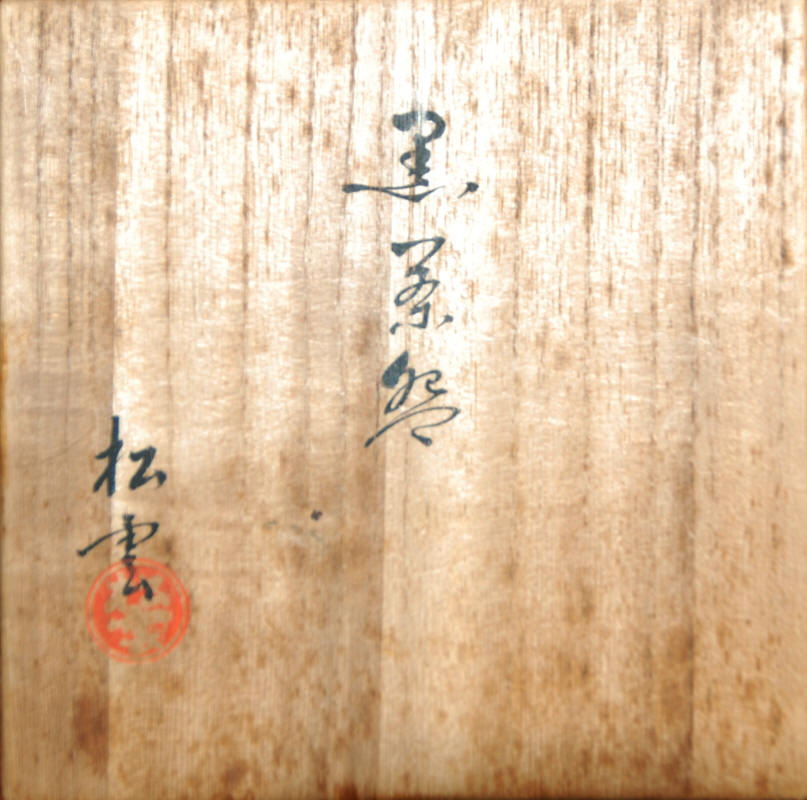 黒茶盌
松雲